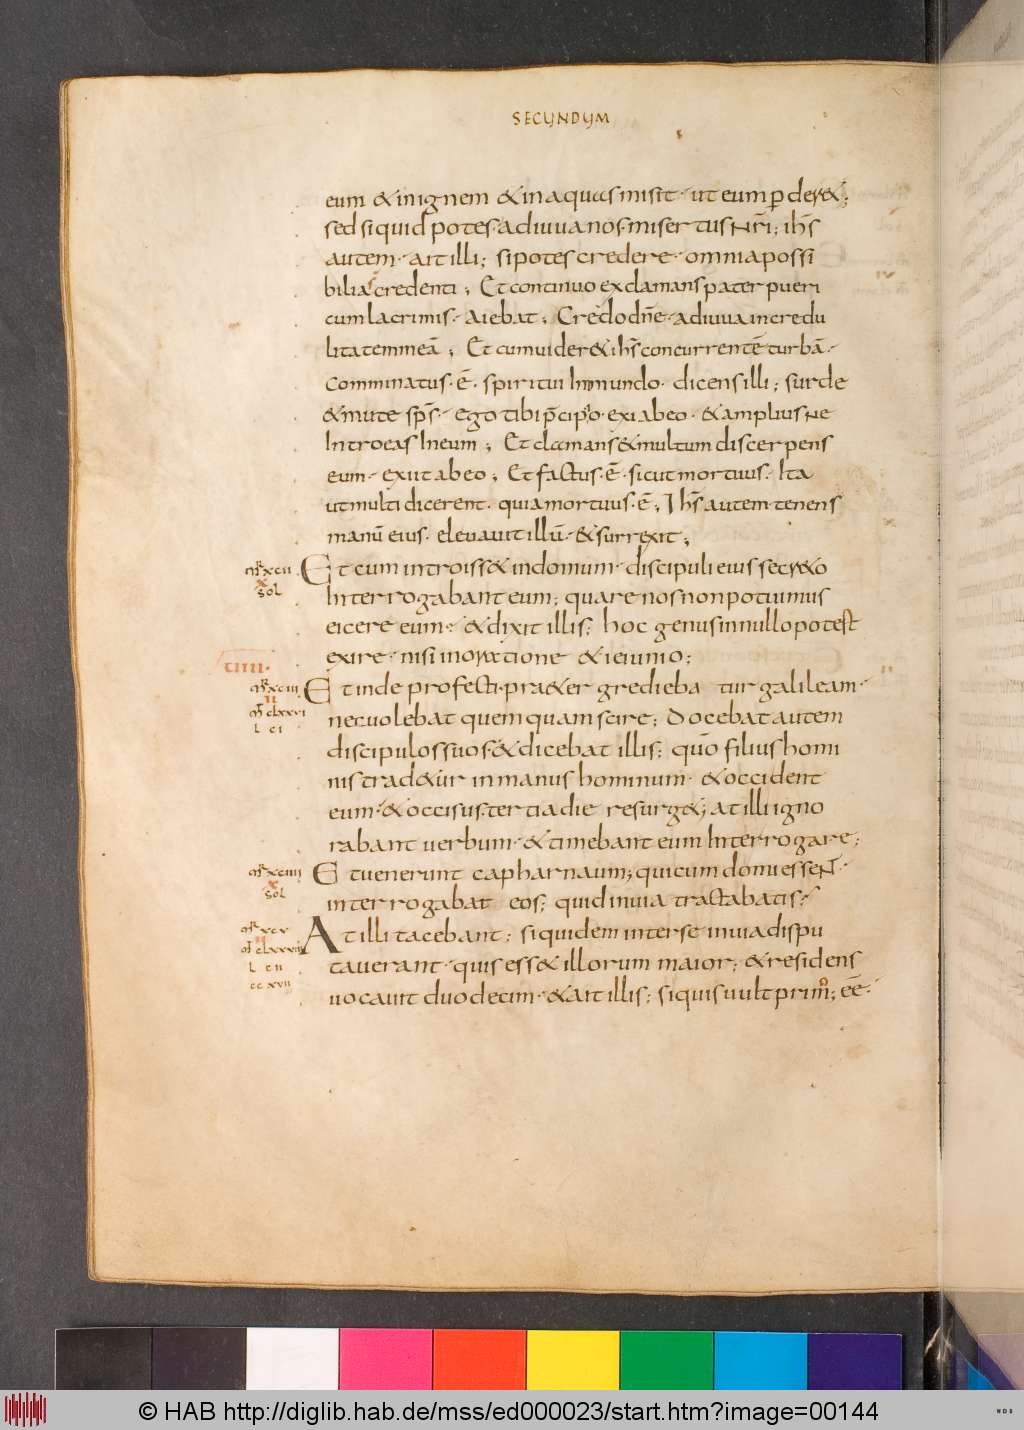 SECUNDUM
eum & in ignem & in aquas misit· ut eum p̱der&;
sed si quid potes· adiuua nos· misertus nr̄i; ih̄s
autem· ait illi; si potes credere· omnia possi
bilia credenti; Et continuo exclamans pater pueri
cum lacrimis· aiebat; Credo dn̄e· adiuua incredu
litatem meā; Et cum uider& ih̄s concurrentē turbā·
Comminatus·ē· spiritui Inmundo· dicens illi; surde
& mute sp̄s· ego tibi p̄cipio· exi ab eo· & amplius ne
Introeas In eum; Et clamans & multum discerpens
eum· exiit ab eo; Et factus·ē· sicut mortuus· Ita
ut multi dicerent· quia mortuus·ē; Ih̄s autem· tenens
manū eius· eleuauit illū· & surrexit;
mr̄ xcii
x
sol
Et cum introiss& in domum· discipuli eius secr&o
Interrogabant eum; quare nos non potuimus
eicere eum· & dixit illis; hoc genus in nullo potest
exire· nisi in oratione & ieiunio;
iiii·
mr̄ xciii
ii
mt̄ clxxvi
l ci
Et inde profecti· praetergredieba tur galileam·
nec uolebat quemquam scire; Docebat autem
discipulos suos· & dicebat illis; qūo filius homi
nis trad&ur in manus hominum· & occident
eum· & occisus· tertia die resurg&; at illi igno
rabant uerbum· & timebant eum Interrogare;
mr̄ xciiii
x
sol
Et uenerunt capharnaum; qui cum domi essent·
interrogabat eos; quid in uia tractabatis?
mr̄ xcv
ii
mt̄ clxxviii
l cii
cc xvii
At illi tacebant; siquidem inter se in uia dispu
tauerant· quis ess& illorum maior; & residens
uocauit duodecim· & ait illis; si quis uult prim̄; eē·
© HAB http://diglib.hab.de/mss/ed000023/start.htm?image=00144
WDB